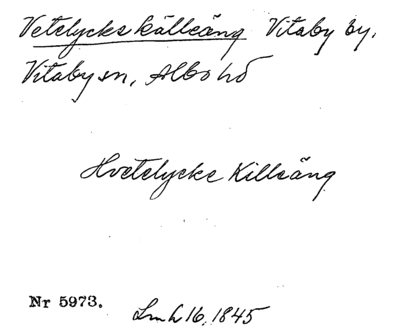 Vetelycks källeäng Vitaby by,
Vitaby sn, Albo hd
Hvetelycke Killeäng
Nr 5973.
Lmh 16, 1845